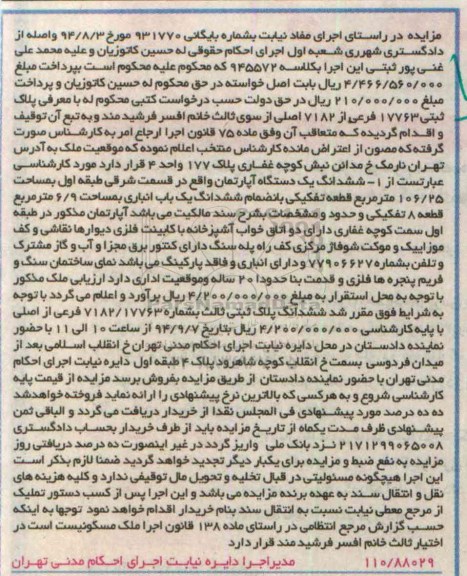 مزایده در راستای اجرای مفاد نیابت بشماره بایگانی ۹۳۱۷۷۰ مورخ ۹۴/۸/۳ واصله از
دادگستری شهرری شعبه اول اجرای احکام حقوقی له حسین کاتوزیان و علیه محمد علی
غنی پور ثبتی این اجرا بکلاسه ۹۴۵۵۷۲ که محکوم علیه محکوم است بپرداخت مبلغ
۴/۴۶۶/۵۶۰/۰۰۰ ریال بابت اصل خواسته در حق محکوم له حسین کاتوزیان و پرداخت
مبلغ ۲۱۰/۰۰۰/۰۰۰ ریال در حق دولت حسب درخواست کتبی محکوم له با معرفی پلاک
ثبتی ۱۷۷۶۳ فرعی از ۷۱۸۲ اصلی از سوی ثالث خانم افسر فرشید مند و به تبع آن توقیف
و اقدام گردیده که متعاقب آن وفق ماده ۷۵ قانون اجرا ارجاع امر به کارشناس صورت
گرفته که مصون از اعتراض مانده کارشناس منتخب اعلام نموده که موقعیت ملک به آدرس
تهران نارمک خ مدائن نبش کوچه غفاری پلاک ۱۷۷ واحد ۴ قرار دارد مورد کارشناسی
عبارتست از ۱- ششدانگ یک دستگاه آپارتمان واقع در قسمت شرقی طبقه اول بمساحت
۱۰۶/۲۵ مترمربع قطعه تفکیکی بانضمام ششدانگ یک باب انباری بمساحت ۶/۹ مترمربع
قطعه ۸ تفکیکی و حدود و مشخصات بشرح سند مالکیت می باشد آپارتمان مذکور در طبقه
اول سمت کوچه غفاری دارای دو اتاق خواب آشپزخانه با کابینت فلزی دیوارها نقاشی و کف
موزاییک و موکت شوفاژ مرکزی کف راه پله سنگ دارای کنتور برق مجزا و آب و گاز مشترک
و تلفن بشماره ۷۷۹۰۶۶۲۷ و دارای انباری و فاقد پارکینگ می باشد نمای ساختمان سنگ و
فریم پنجره ها فلزی و قدمت بنا حدودا ۲۰ ساله وموقعیت اداری دارد ارزیابی ملک مذکور
با توجه به محل استقرار به مبلغ ۴/۲۰۰/۰۰۰/۰۰۰ ریال برآورد و اعلام می گردد با توجه
به شرایط فوق مقرر شد ششدانگ پلاک ثبتی ثالث بشماره ۷۱۸۲/۱۷۷۶۳ فرعی از اصلی
با پایه کارشناسی ۴/۲۰۰/۰۰۰/۰۰۰ ریال بتاریخ ۹۴/۹/۷ از ساعت ۱۰ الی ۱۱ با حضور
نماینده دادستان در محل دایره نیابت اجرای احکام مدنی تهران خ انقلاب اسلامی بعد از
میدان فردوسی بسمت خ انقلاب کوچه شاهرود پلاک ۴ طبقه اول دایره نیابت اجرای احکام
مدنی تهران با حضور نماینده دادستان از طریق مزایده بفروش برسد مزایده از قیمت پایه
کارشناسی شروع و به هرکسی که بالاترین نرخ پیشنهادی را ارائه نماید فروخته خواهدشد
ده درصد مورد پیشنهادی فی المجلس نقدا از خریدار دریافت می گردد و الباقی ثمن
پیشنهادی ظرف مدت یکماه از تاریخ مزایده باید از طرف خریدار بحساب دادگستری
۲۱۷۱۲۹۹۰۶۵۰۰۸ نزد بانک ملی واریز گردد در غیر اینصورت ده درصد دریافتی روز
مزایده به نفع ضبط و مزایده برای یکبار دیگر تجدید خواهد گردید ضمنا لازم بذکر است
این اجرا هیچگونه مسئولیتی در قبال تخلیه و تحویل مال توقیفی ندارد و کلیه هزینه های
نقل و انتقال سند به عهده برنده مزایده می باشد و این اجرا پس از کسب دستور تملیک
از مرجع معطی نیابت نسبت به انتقال سند بنام خریدار اقدام خواهد نمود توجها به اینکه
حسب گزارش مرجع انتظامی در راستای ماده ۱۳۸ قانون اجرا ملک مسکونیست است در
اختیار ثالث خانم افسر فرشید مند قرار دارد
۱۱۰/۸۸۰۲۹ مدیراجرا دایره نیابت اجرای احکام مدنی تهران